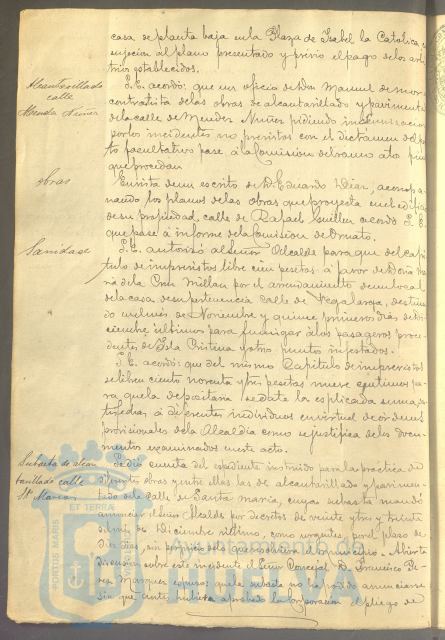 casa de planta baja en la Plaza de Isabel la Católica, con
sujecion al plano presentado y previo el pago de los arbi
trios establecidos.
Alcantarillado
calle
Mendez Nuñez
S. E. acordó: que un oficio de Don Manuel de mora
contratista de las obras de alcantarillado y pavimento
de la calle de Mendez Nuñez pidiendo indemnizacion
por los incidentes no previstos con el dictámen del
facultativo pase á la Comision del ramo a lo que
que procedan
obras
En vista de un escrito de D. Eduardo Diaz, acompa
nando los planos de las obras que proyecta en el edificio
de su propiedad, calle de Rafael Guillen acordó S. E.
que pase á informe de la Comision de Ornato.
Sanidad
S. E. autorizó al Señor Alcalde para que del capí
tulo de imprevistos libre cien pesetas á favor de Doña Ma
ria de la Cruz Millan por el arrendamiento de un local
de la casa de su pertenencia calle de
do en el mes de Noviembre y quince primeros dias de Di
ciembre últimos para fumigar á los pasageros proce
dentes de Isla Cristina y otros puntos infestados.
S. E. acordó: que del mismo Capítulo de imprevistos
se libre ciento noventa y tres pesetas nueve centimos
para que la depositaria se date la esplicada suma, sa
tisfecha, á diferentes individuos en virtud de ordenes
provisionales de la Alcaldía como se justifica de los docu
mentos examinados en este acto.
Subasta de alcan
tarillado calle
Sta. Maria
Se dió cuenta del espediente instruido para la práctica de
distintas obras y entre ellas las de alcantarillado y pavimen
tado de la calle de Santa Maria, cuya subasta mandó
anunciar el Señor Alcalde por decretos de veinte y tres y treinta
del mes de Diciembre último, como urgentes, por el plazo de
diez dias, sin perjuicio de lo que resolviera el municipio. Abierta
discusion sobre este incidente el Señor Concejal D. Francisco
Marquez espuso: que la subasta no ha podido anunciarse
sin que antes hubiera aprobado la Corporacion el pliego de
PORTUS MARIS
ET TERRA
Ayuntamiento de
HUELVA